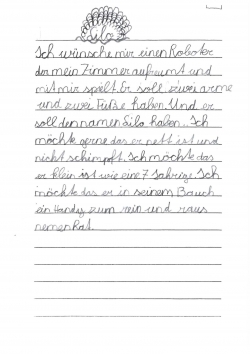 Silo
Ich wünsche mir einen Roboter
der mein Zimmer aufreumt und
mit mir spielt. Er soll zwei arme
und zwei Füße haben. Und er
soll den namen Silo haben. Ich
möchte gerne das er nett ist und
nicht schimpft. Ich möchte das
er klein ist wie eine 7 Jährige. Ich
möchte das er in seinem Bauch
ein Handy zum rein und raus
nemen hat.